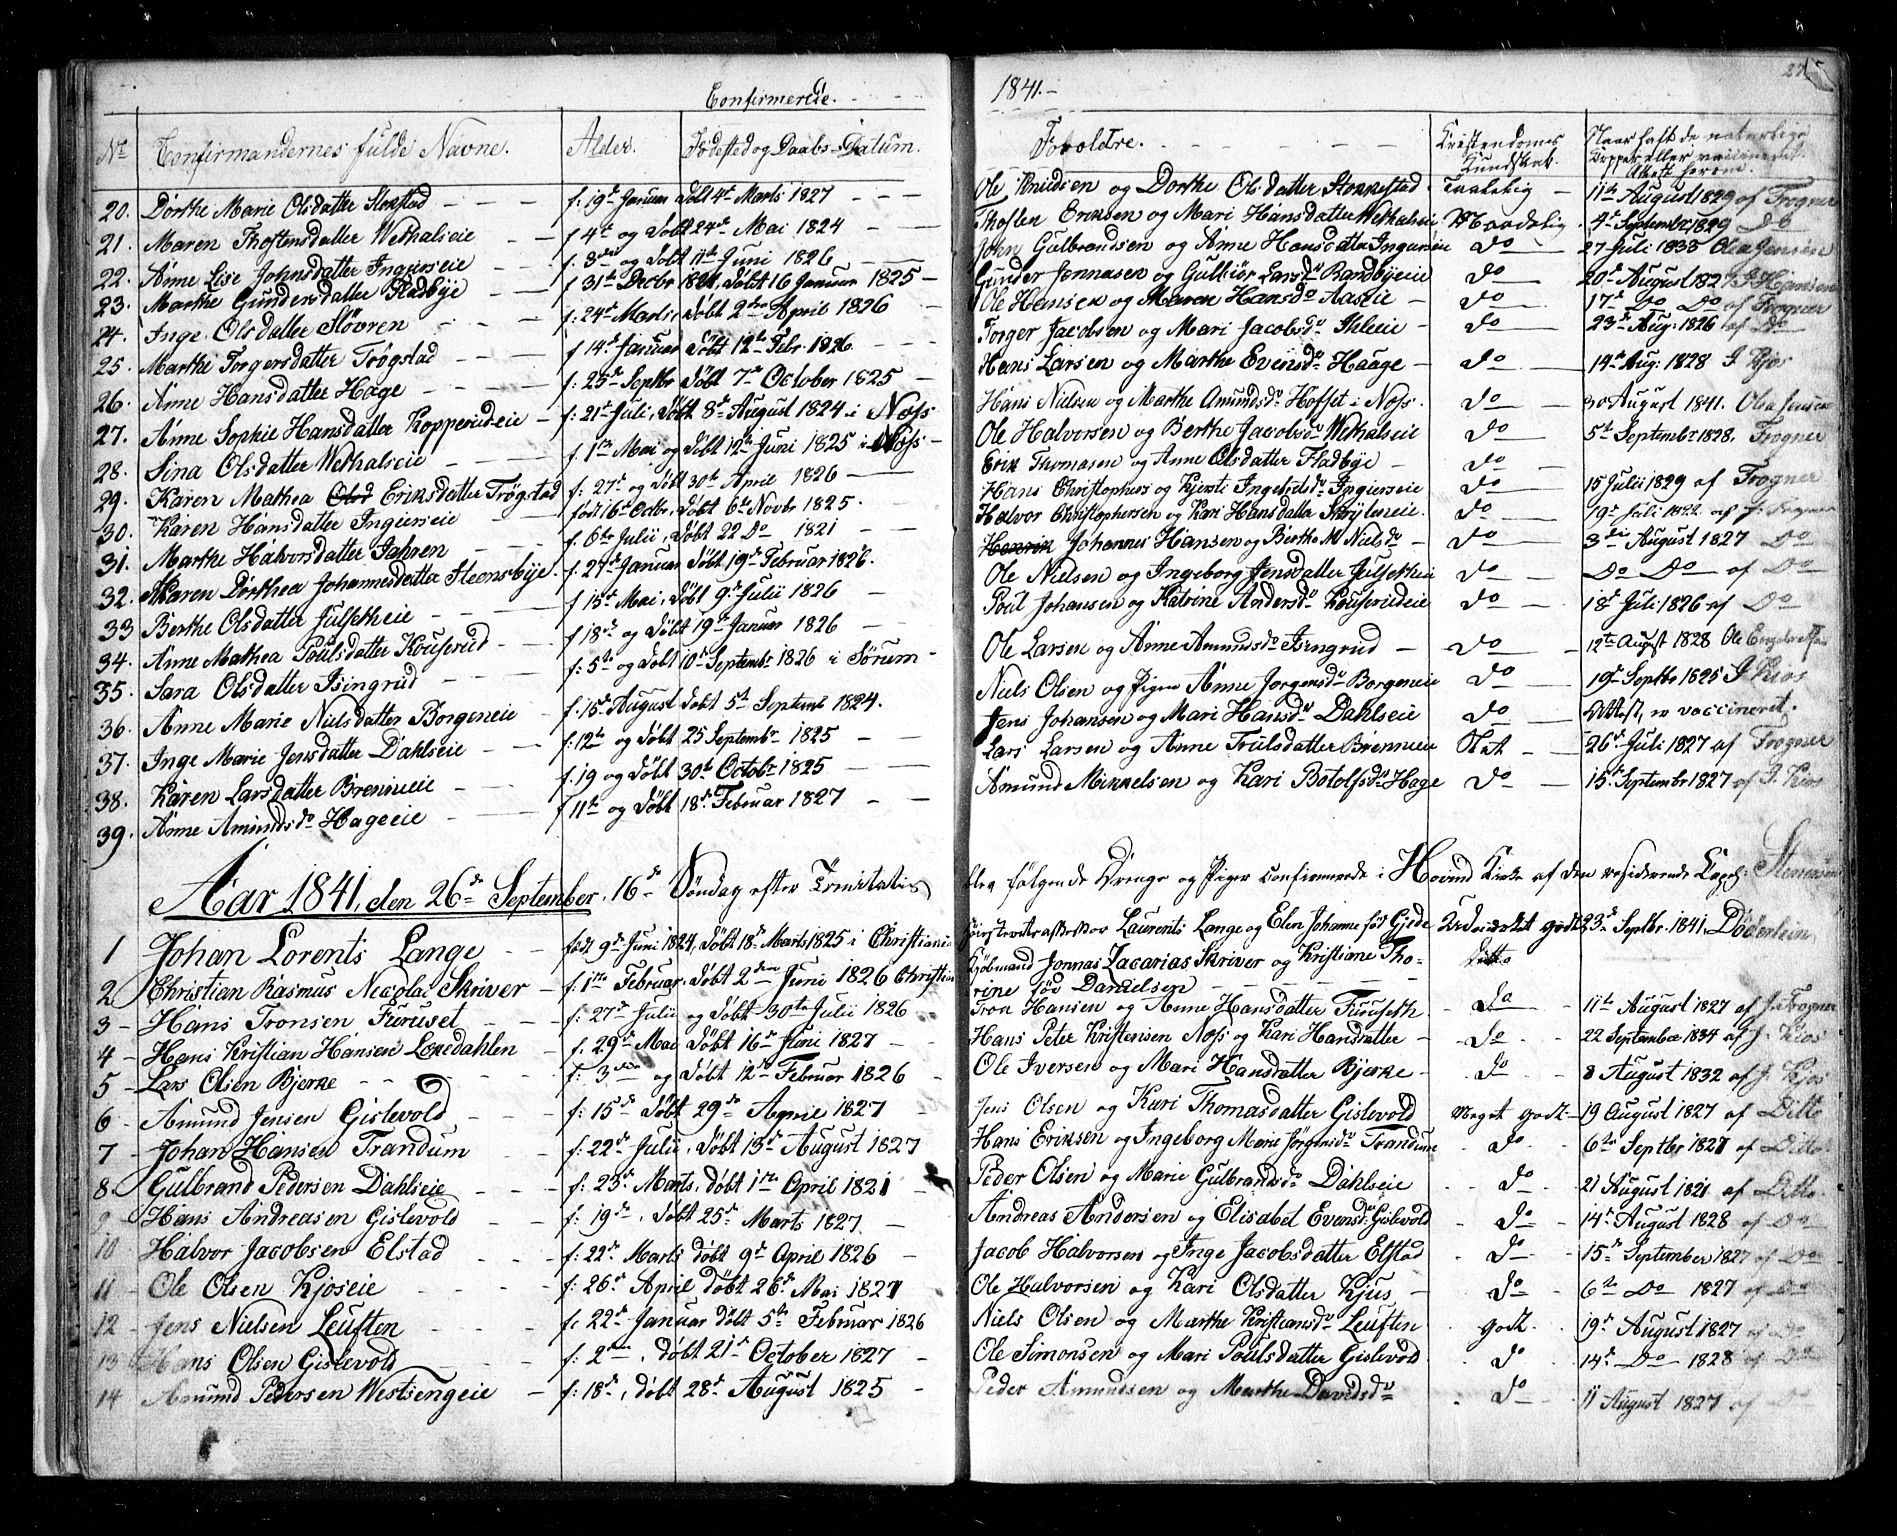 Confirmerede.
1841.
27
No Confirmandernes fulde Navne. Alder. Födested og Daabs-Datum.
Forældre. Kristendoms Kundskab.
20. Dorthe Marie Olsdatter Stokstad f: 19de Januar döbt 4de Marts 1827 Ole Knudsen og Dorthe Olsdatter Stokkestad Taalelig 11te August 1829 af Frogner
21. Maren Thostensdatter Wethalseie f 4de og döbt 24de Mai 1824 Thosten Eriksen og Mari Hansdatter Wethalseie Maadelig 4de September 1829 Do
22. Anne Lise Johnsdatter Ingierseie f. 3die og döbt 11te Juni 1826 John Gulbrandsen og Anne Hansdatter Ingierseie Do 27 Juli 1838 Ole Jensen
23. Marthe Gundersdatter Radbye f 31te Decbr 1824, döbt 16 Januar 1825 Gunder Jonnasen og Gulbiör Larsdr Randbyeeie Do 20de August 1827 J Hansen
24. Inge Olsdatter Sløvren f: 24de Marts döbt 2den April 1826 Ole Hansen og Maren Hansdr Aaseie Do 17de Do Do af Frogner
25. Marthe Torgersdatter Trögstad f 14de Januar döbt 12te Febr. 1826 Torger Jacobsen og Mari Jacobsdr Do 23de Aug. 1826 af Do
26. Anne Hansdatter Hage f: 25de Septbr döbt 7de October 1825 Hans Larsen og Marthe Evensdr Haage Do 14de Aug: 1828 J Kjos
27. Anne Sophie Hansdatter Kopperudeie f: 21de Juli, döbt 8de August 1824 i Næs. Hans Nielsen og Marthe Amundsdr Hofset i Næs. Do 30 August 1841. Ole Jensen
28. Sina Olsdatter Wethalseie f. 1ste Mai og döbt 12te Juni 1825 i Næs Ole Halvorsen og Berthe Jacobsdr Wethalseie Do 5te Septembr 1828, Frogner
29. Karen Mathea Olsd Eriksdatter Trögstad f: 27de og döbt 30te April 1826 Erik Thomasen og Anne Olsdatter Fladbye Do
30. Karen Hansdatter Ingierseie född 16de Octbr, döbt 6te Novbr 1825. Hans Christophers og Kjersti Ingebretsdr Ingierseie Do 15 Julii 1829 af Frogner
31. Marthe Halvorsdatter Jahren f. 6te Julii, döbt 22 Do 1821 Halvor Christophersen og Kari Hansdatter Do 19de Juli 1822 af J. Frogner
32. Maren Dorthea Johannesdatter Steensbye. f. 27de Januar döbt 19de Februar 1826. Henrik Johannes Hansen og Birthe M Nielsdr Do 3die August 1827 Do
33 Berthe Olsdatter Julsetheie f 15de Mai, döbt 9de Julii 1826 Ole Nielsen og Ingeborg Jensdatter Julsetheie Do Do Do af Do
34. Anne Mathea Poulsdatter Kouserud f 18de og döbt 19de Januar 1826 Poul Johansen og Katrine Andersdr Kouserudeie Do 18de Juli 1826 af Do
35. Sara Olsdatter Isingrud f: 5te og döbt 10de Septembr 1826 i Sörum Ole Larsen og Anne Amundsdr Isingrud Do 12te August 1828 Ole Engebretsen
36. Anne Marie Nielsdatter Borgeneie f: 15de August döbt 5te Septemb 1824. Niels Olsen og Pigen Anne Jorgensdr Borgeneie Do 19de Septbr 1825 J Kjos
37. Inge Marie Jensdatter Dahlseie f: 12te og döbt 25 Septembr 1825 Jens Johansen og Mari Hansdr Dahlseie Do Attest, er vaccineret.
38. Karen Larsdatter Brennieie f. 19 og döbt 30te Octobr 1825 Lars Larsen og Anne Trulsdatter Brennieie Slet 26de Juli 1827 af Frogner
39. Anne Amundsdr Hageeie f 11te og döbt 18de Februar 1827 Amund Mikkelsen og Kari Botolfsdr Hage Do 15de Septembr 1827 af J. Kjos
Aar 1841, den 26de September, 16de Söndag efter Trinitatis blev fölgende Drenge og Piger confirmerede i Hovind Kirke af den residerende Capel: Stenersen
1 Johan Lorents Lange född 9de Juni 1824, döbt 18de Marts 1825 i Christiania Laurents Lange og Elen Johanne född Gjede Udmærket godt 23de Septbr. 1841, Döderlein
2 Christian Rasmus Nicolai Skriver f. 1ste Februar, döbt 2den Juni 1826 Christian Kjöbmand Jonnas Zacarias Skriver og Kristiane Tho- Ditto
rine föd Danielsen
3 Hans Tronsen Furuset f: 27de Julii og döbt 30te Julii 1826 Tron Hansen og Anne Hansdatter Furuseth Do 11te August 1827 af J. Frogner
4 Hans Kristian Hansen Loxedahlen f. 29de Mai döbt 16de Juni 1827 Hans Peter Kristensen Næss og Kari Hansdatter Do 22 September 1834 af J. Kjos
5 Lars Olsen Bjerke f: 3die og döbt 12te Februar 1826 Ole Iversen og Mari Hansdatter Bjerke Do 8 August 1832 af J. Kjos
6 Amund Jensen Gislevold f: 15de döbt 29de April 1827 Jens Olsen og Kari Thomasdatter Gislevold Meget godt 19 August 1827 af Ditto
7 Johan Hansen Trandum f: 22de Julii, döbt 13de August 1827 Hans Eriksen og Ingeborg Marie Jörgensdr Trandum Do 6te Septbr 1827 af Ditto
8. Gulbrand Pedersen Dahlseie f: 23de Marts, döbt 1ste April 1821 Peder Olsen og Marie Gulbrandsdr Dahlseie Do 21 August 1821 af Ditto
9 Hans Andreasen Gislevold f: 19de, döbt 25de Marts 1827. Andreas Andersen og Elisabet Evensdr Gislevold Do 14de August 1828 af Do
10 Halvor Jacobsen Elstad f: 22de Marts döbt 9de April 1826 Jacob Halvorsen og Inge Jacobsdatter Elstad Do 15de September 1827 af Do
11 Ole Olsen Kjoseie f: 26de April döbt 26de Mai 1827 Ole Halvorsen og Kari Olsdatter Kjus Do 6te Do 1827 af Do
12 Jens Nielsen Leuften f: 22de Januar döbt 5te Februar 1826 Niels Olsen og Marthe Kristiansdr Leuften godt 19de August 1827 af Do
13 Hans Olsen Gislevold f: 2den, döbt 21de October 1827 Ole Simonsen og Mari Poulsdatter Gislevold Do 14de Do 1828 af Do
14 Amund Pedersen Westengeie f: 18de, döbt 28de August 1825 Peder Amundsen og Marthe Davidsdr Do 11 August 1827 af Do